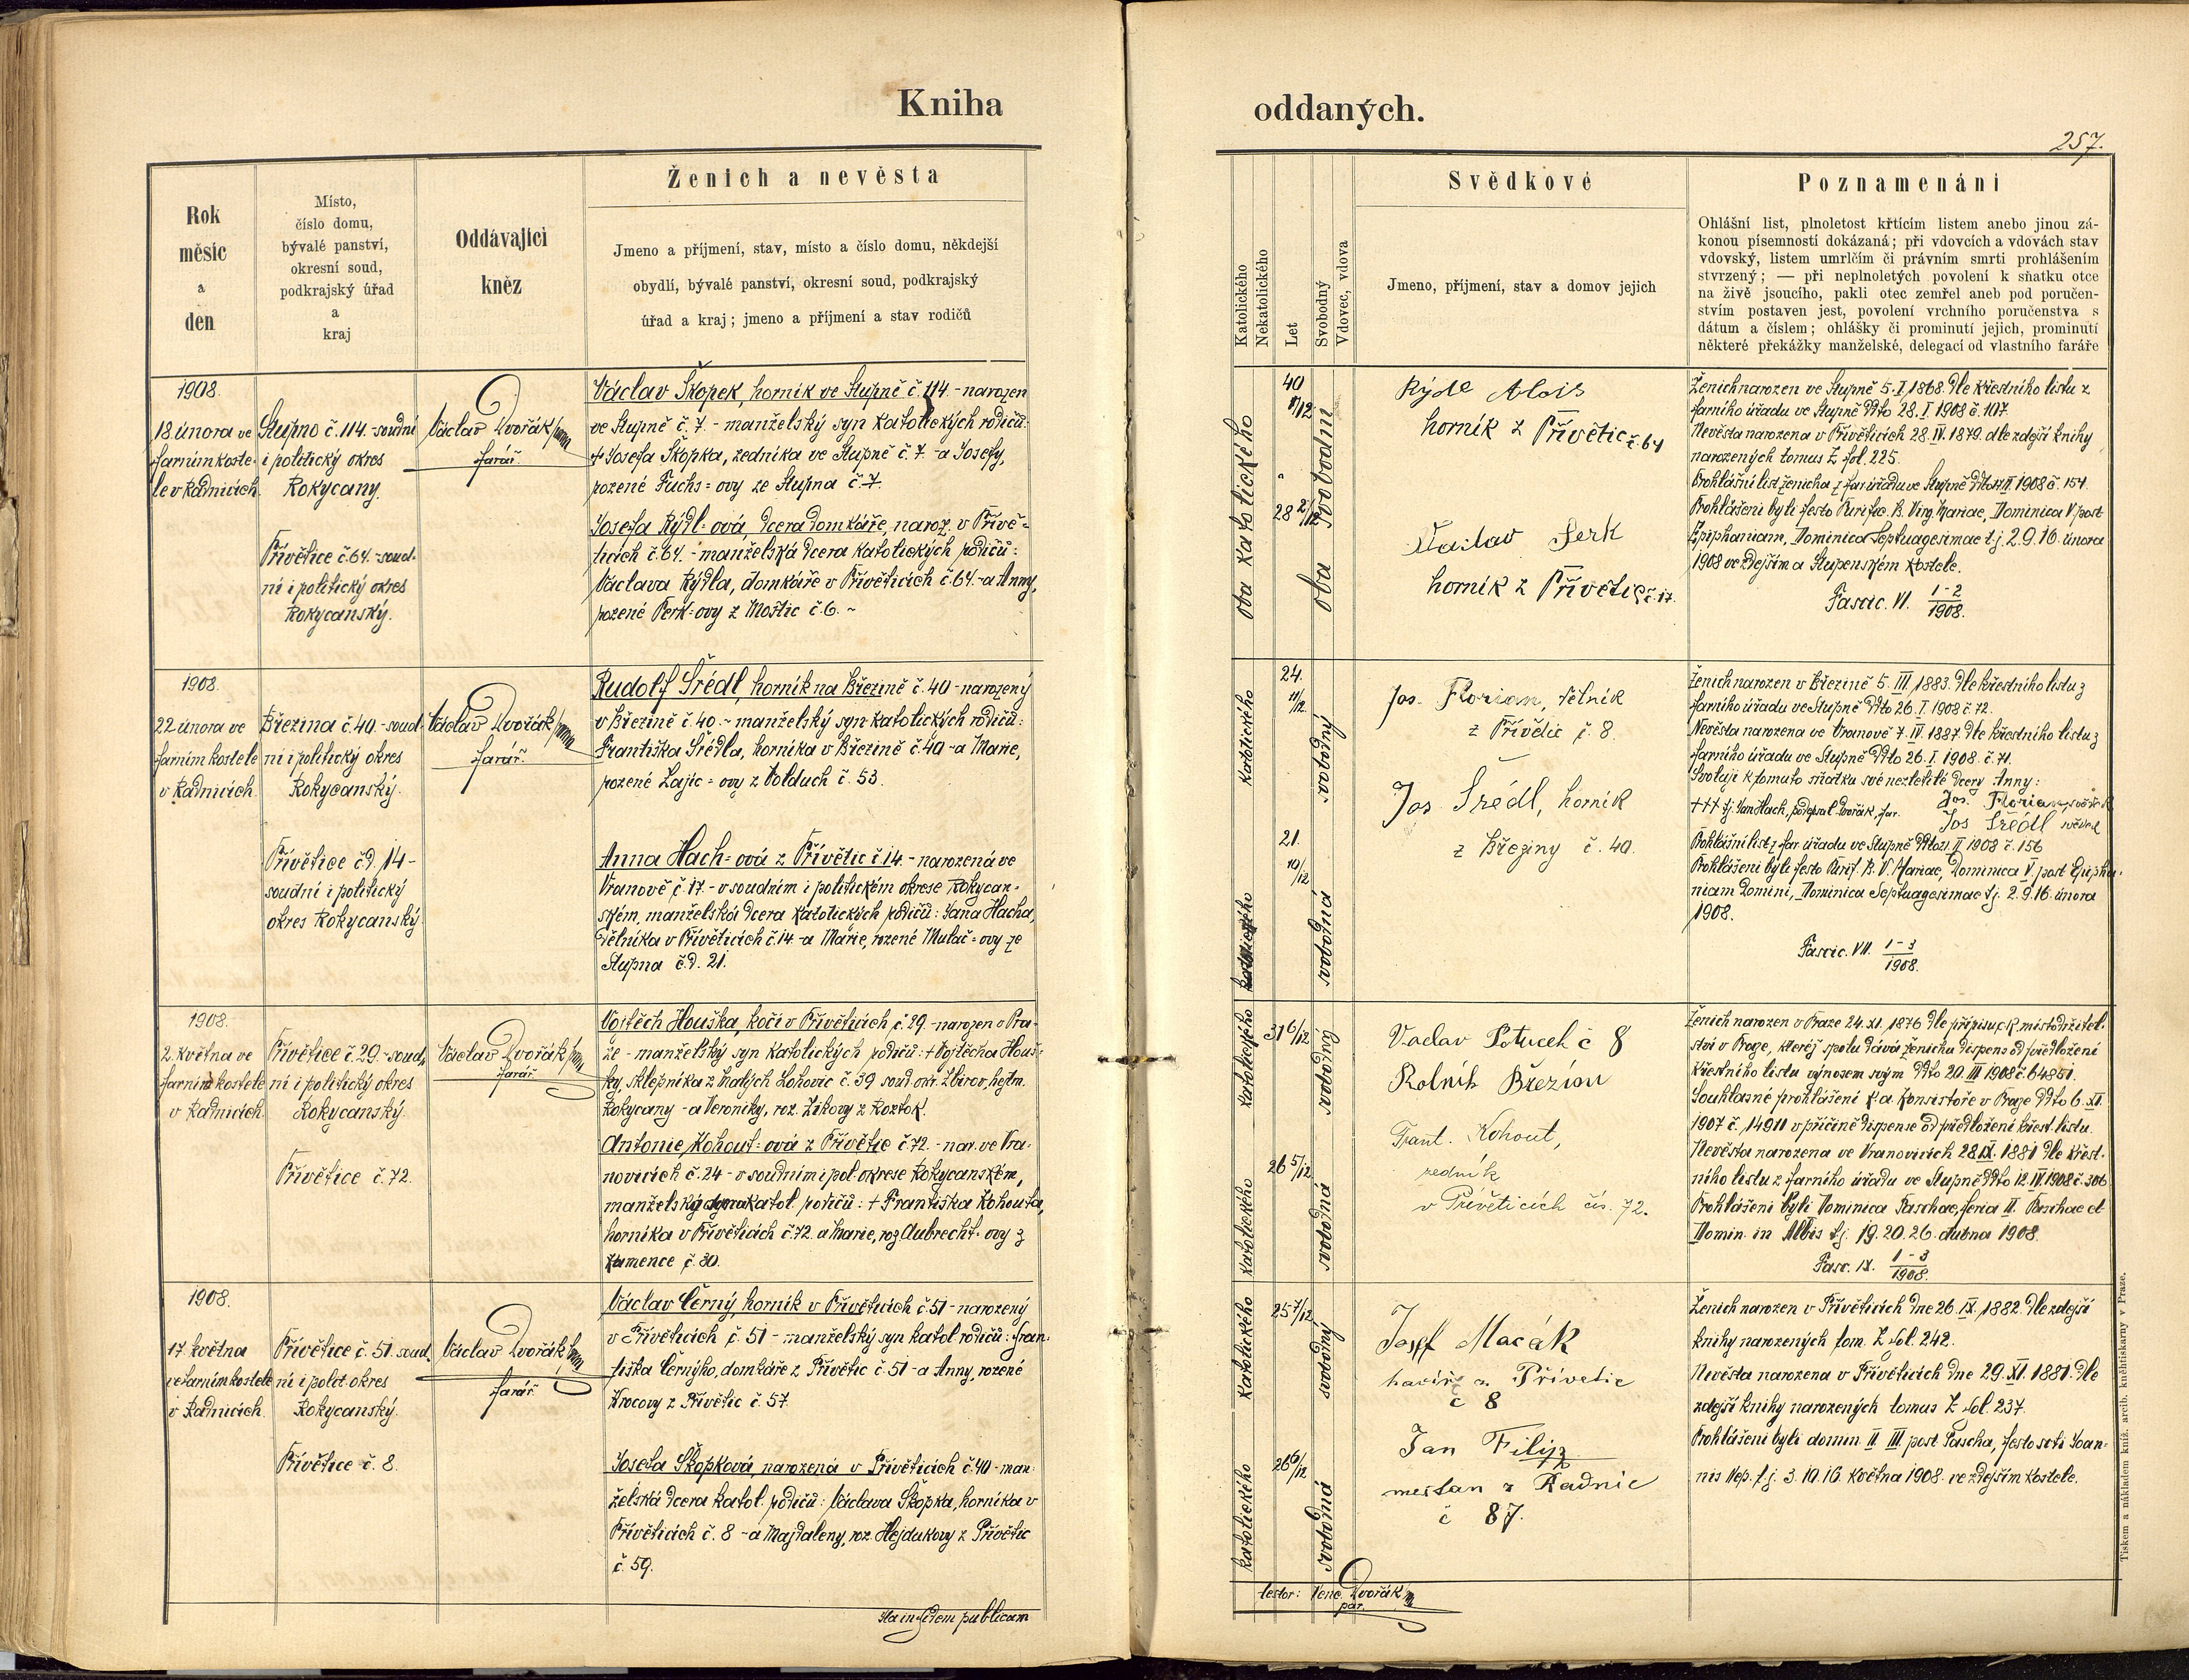 Kniha
oddaných.
257.
Rok
měsíc
a
den
Místo,
číslo domu,
bývalé panství,
okresní soud,
podkrajský úřad
a
kraj
Oddávající
kněz
Ženich a nevěsta
Jmeno a příjmení, stav, místo a číslo domu, někdejší
obydlí, bývalé panství, okresní soud, podkrajský
úřad a kraj; jmeno a příjmení a stav rodičů
Katolického
Nekatolického
Let
Svobodný
Vdovec, vdova
Svědkové
Jmeno, příjmení, stav a domov jejich
Poznamenání
Ohlášní list, plnoletost křtícím listem anebo jinou zá-
konou písemností dokázaná; při vdovcích a vdovách stav
vdovský, listem umrlčím či právním smrti prohlášením
stvrzený; — při neplnoletých povolení k sňatku otce
na živě jsoucího, pakli otec zemřel aneb pod poručen-
stvím postaven jest, povolení vrchního poručenstva s
dátum a číslem; ohlášky či prominutí jejich, prominutí
některé překážky manželské, delegací od vlastního faráře
1908.
18 února ve
farním koste-
le v Radnicích.
Stupno č. 114.-soudní
i politický okres
Rokycany.
Přívětice č. 64.-soud-
ní i politický okres
Rokycanský.
Václav Dvořák
farář.
Václav Škopek, horník ve Stupně č. 114 - narozen
ve Stupně č. 7. - manželský syn katolických rodičů:
† Josefa Škopka, zedníka ve Stupně č. 7. - a Josefy,
rozené Fuchs=ovy ze Stupna č. 7.
Josefa Rýdl=ová, dcera domkáře, naroz. v Přívě-
ticích č. 64. - manželská dcera katolických rodičů:
Václava Rýdla, domkáře v Přívěticích č. 64. - a Anny,
rozené Perk=ovy z Moštic č. 6. ~
oba katolického
40
28 2/12
oba svobodní
Rýdl Alois
horník z Přívětic č. 64
Václav Perk
horník z Přívětic č. 17.
Ženich narozen ve Stupně 5. I. 1868. dle křestního listu z
farního úřadu ve Stupně ddto 28. I. 1908 č. 107.
Nevěsta narozena v Přívěticích 28. IV. 1879. dle zdejší knihy
narozených tomus Z fol. 225.
Prohlášní list ženicha z far. úřadu ve Stupně ddto II. 1908 č. 154.
Prohlášeni byli festo Purific. B. Virg. Mariae, Dominica V post
Epiphaniam, Dominica Septuagesimae t. j. 2. 9. 16. února
1908 ve zdejším a Stupenském kostele.
Fascic. VI. 1-2/1908.
1908.
22 února ve
farním kostele
v Radnicích.
Březina č. 40 - soud-
ní i politický okres
Rokycanský.
Přívětice čd. 14 -
soudní i politický
okres Rokycanský.
Václav Dvořák
farář.
Rudolf Šrédl, horník na Březině č. 40 - narozený
v Březině č. 40. ~ manželský syn katolických rodičů:
Františka Šrédla, horníka v Březině č. 40 - a Marie,
rozené Lajic=ovy z Volduch č. 53.
Anna Hach=ová z Přívětic č. 14. - narozená ve
Vranově č. 17. - v soudním i politickém okrese Rokycan-
ském, manželská dcera katolických rodičů: Jana Hacha,
dělníka v Přívěticích č. 14 - a Marie, rozené Mulač=ovy ze
Stupna č.d. 21.
katolického
katolického
24.
11/12
21.
10/12
svobodný
svobodná
Jos. Florian, dělník
z Přívětic č. 8.
Jos Šrédl, horník
z Březiny č. 40.
Ženich narozen v Březině 5. III. 1883. dle křestního listu z
farního úřadu ve Stupně ddto 26. I. 1908 č. 72.
Nevěsta narozena ve Vranově 7. IV. 1887 dle křestního listu z
farního úřadu ve Stupně ddto 26. I. 1908. č. 71.
Svoluji k tomuto sňatku své nezletilé dcery Anny:
+++ tj. Jan Hach, podepsal Dvořák, far. Jos. Florian, svědek
Jos Šrédl svědek
Prohlášní list z far. úřadu ve Stupně ddto II. 1908 č. 156
Prohlášeni byli festo Purif. B. V. Mariae, Dominica V. post Epipha-
niam Domini, Dominica Septuagesimae t. j. 2. 9. 16. února
1908.
Fascic. VII. 1-3/1908.
1908.
2. května ve
farním kostele
v Radnicích.
Přívětice č. 29.-soud-
ní i politický okres
Rokycanský.
Přívětice č. 72.
Václav Dvořák
farář
Vojtěch Houška, kočí v Přívěticích č. 29. - narozen v Pra-
ze - manželský syn katolických rodičů: † Vojtěcha Houš-
ky, sklepníka z Malých Lohovic č. 39 soud. okr. Zbirov, hejtm.
Rokycany - a Veroniky, roz. Zikovy z Roztok.
Antonie Kohout=ová z Přívětic č. 72. - nar. ve Vra-
novicích č. 24 - v soudním i pol. okrese Rokycanském,
manželská dcera katol. rodičů: † Františka Kohouta,
horníka v Přívěticích č. 72. a Marie, roz. Aubrecht=ovy z
Kamence č. 30.
katolického
katolického
31 6/12
26 5/12
svobodný
svobodná
Vaclav Potucek č 8
Rolník Březina
Frant. Kohout,
zedník
v Přívěticích čís. 72.
Ženich narozen v Praze 24. XI. 1876 dle přípisu c.k. místodržitel-
ství v Praze, kteréž spolu dává ženichu dispens od předložení
křestního listu výnosem svým ddto 20. III 1908 č. 64851.
Souhlasné prohlášení k.a. Konsistoře v Praze ddto 6. XI.
1907 č. 14911 v příčině dispense od předložení křest. listu.
Nevěsta narozena ve Vranovicích 28. IX. 1881 dle křest-
ního listu z farního úřadu ve Stupně ddto 12. IV. 1908 č. 306
Prohlášeni byli Dominica Paschae, feria II. Paschae et
Domin. in Albis t. j. 19. 20. 26. dubna 1908.
Fasc. IX. 1-3/1908.
1908.
17. května
ve farním kostele
v Radnicích.
Přívětice č. 51. soud-
ní i polit. okres
Rokycanský.
Přívětice č. 8.
Václav Dvořák
farář.
Václav Černý, horník v Přívěticích č. 51 - narozený
v Přívěticích č. 51 - manželský syn katol. rodičů: Fran-
tiška Černýho, domkáře z Přívětic č. 51 - a Anny, rozené
Krocovy z Přívětic č. 57.
Josefa Škopková, narozená v Přívěticích č. 40 - man-
želská dcera katol. rodičů: Václava Škopka, horníka v
Přívěticích č. 8 - a Majdaleny, roz. Hejdukovy z Přívětic
č. 59.
katolického
katolického
25 7/12
26 6/12
svobodný
svobodná
Josef Macák
havíř z Přívetic
č 8
Jan Filip
mestan z Radnic
č 87.
Ženich narozen v Přívěticích dne 26. IX. 1882. dle zdejší
knihy narozených tom. Z fol. 242.
Nevěsta narozena v Přívěticích dne 29. XI. 1881. dle
zdejší knihy narozených tomus Z fol. 237.
Prohlášeni byli domin. II. III. post Pascha, festo scti Joan-
nis Nep. t. j. 3. 10. 16. května 1908. ve zdejším kostele.
Ita in fidem publicam
testor: Venc. Dvořák
par.
Tiskem a nákladem kníž. arcib. kněhtiskárny v Praze.